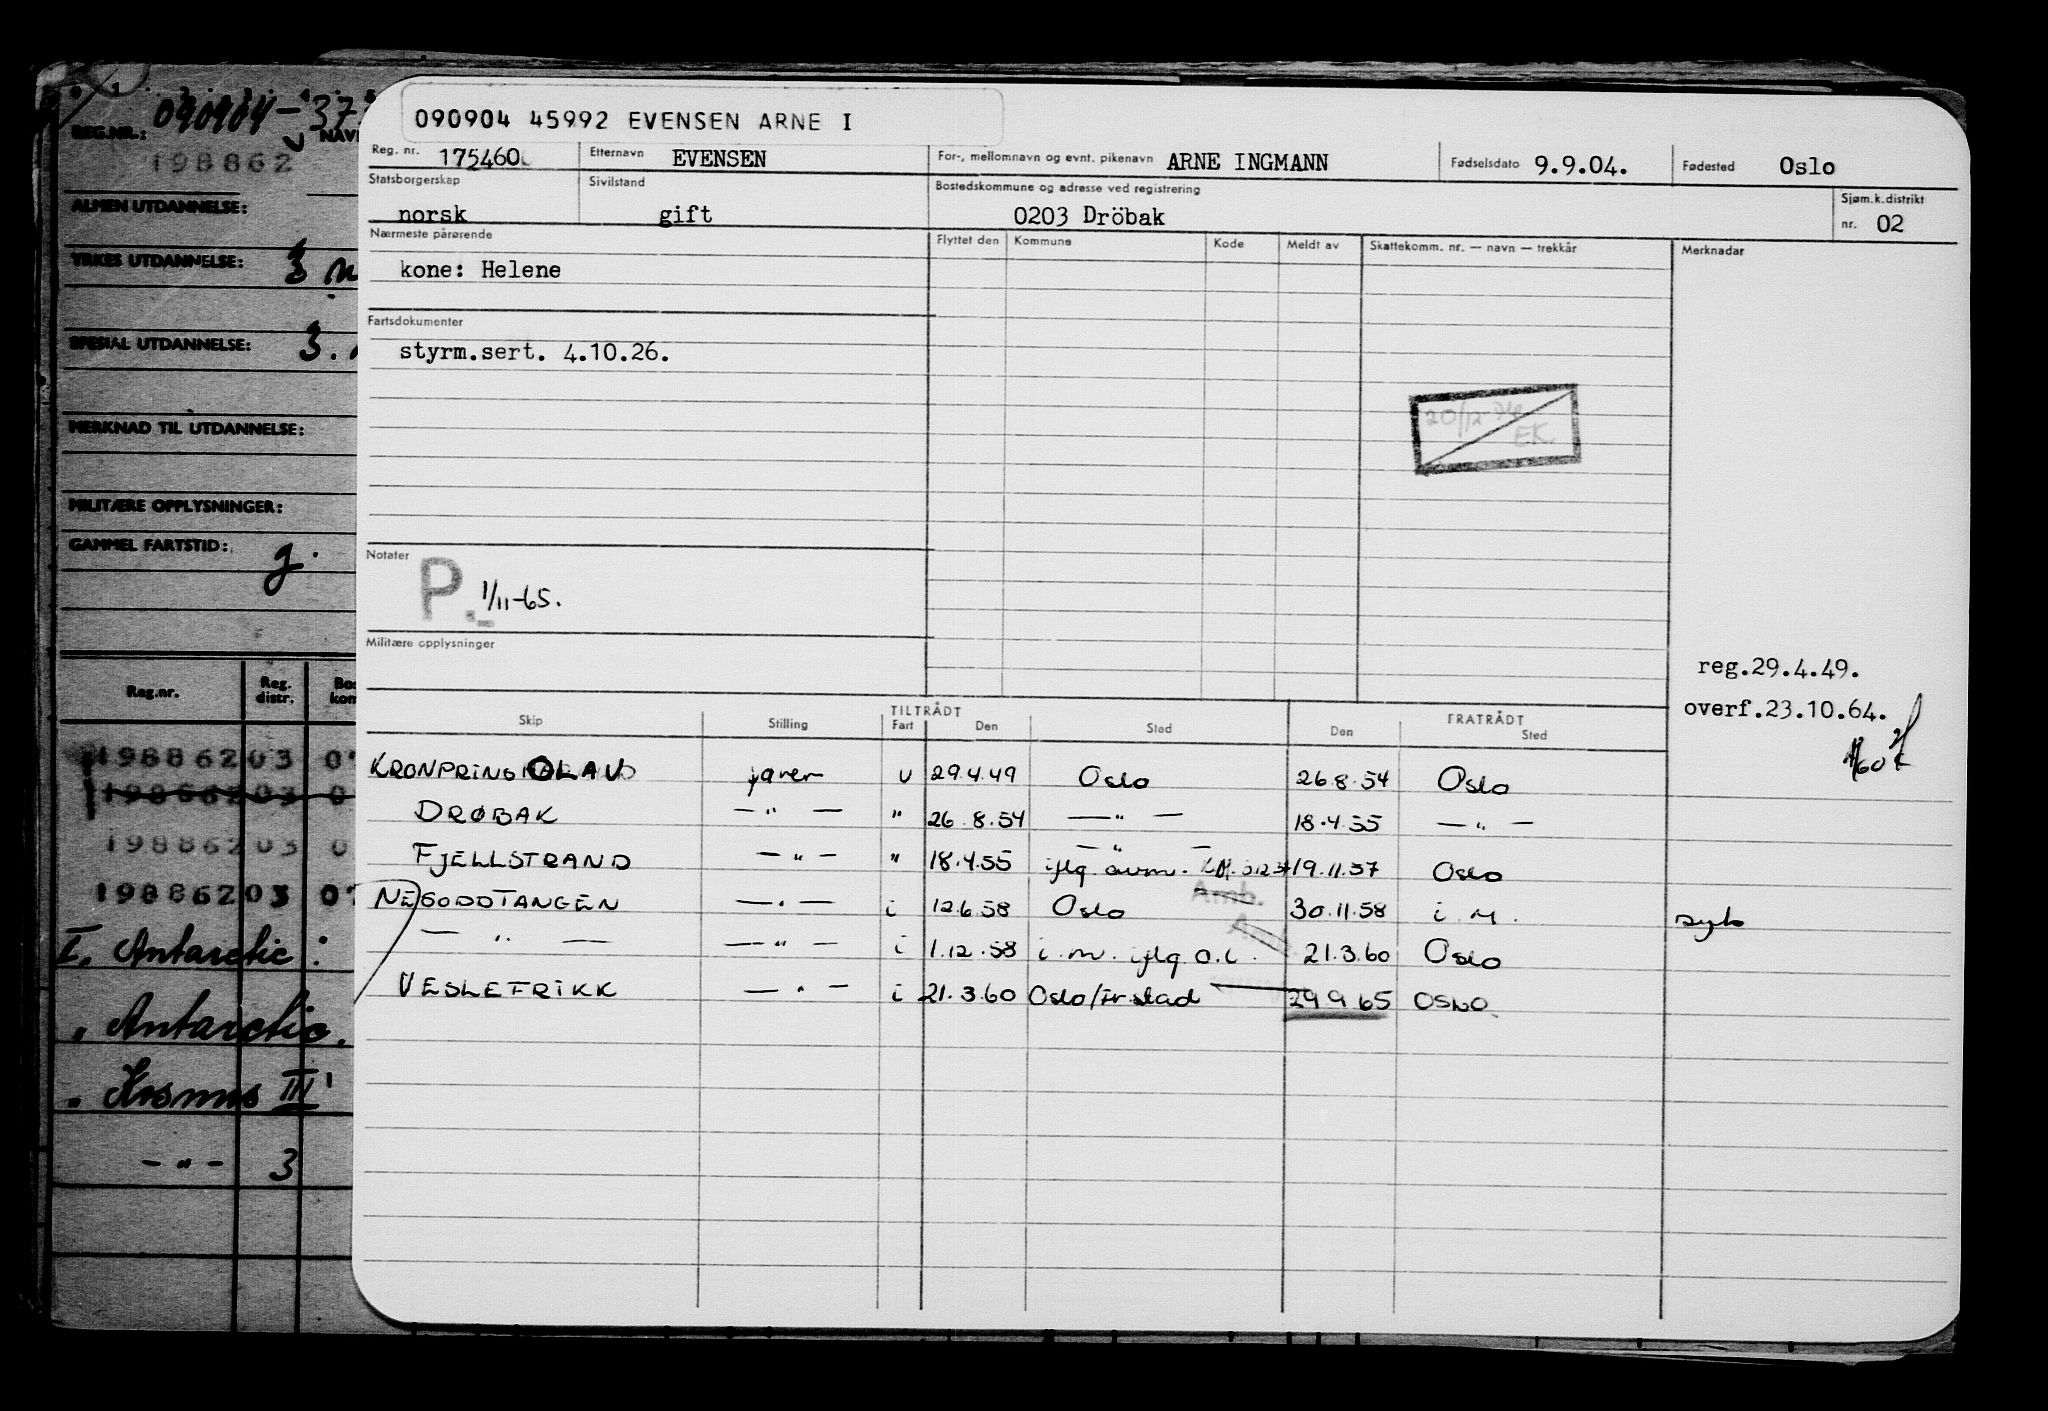 090904-37
REG.NR.:
198862
ALMEN UTDANNELSE:
YRKES UTDANNELSE: 3
SPESIAL UTDANNELSE: 3.
MERKNAD TIL UTDANNELSE:
MILITÆRE OPPLYSNINGER:
GAMMEL FARTSTID: g.
Reg.nr. Reg. distr.
198862 03
198862 03
198862 03 0
198862 03
I. Antarctic :
" Antarctic.
" Kosmos III
— " — 3
090904 45992 EVENSEN ARNE I
Reg. nr. 175460 Etternavn EVENSEN For-, mellomnavn og evnt. pikenavn ARNE INGMANN Fødselsdato 9.9.04. Fødested Oslo
Statsborgerskap norsk Sivilstand gift Bostedskommune og adresse ved registrering 0203 Dröbak Sjøm.k.distrikt nr. 02
Nærmeste pårørende Flyttet den Kommune Kode Meldt av Skattekomm. nr. — navn — trekkår Merknader
kone: Helene
Fartsdokumenter
styrm.sert. 4.10.26.
20/12 EK.
Notater
P. 1/11-65.
Militære opplysninger
reg.29.4.49.
overf.23.10.64.
TILTRÅDT FRATRÅDT
Skip Stilling Fart Den Sted Den Sted
KRONPRINS OLAV v 29.4.49 Oslo 26.8.54 Oslo
DRØBAK — " — " 26.8.54 — " — 18.4.55 — " —
FJELLSTRAND — " — " 18.4.55 — " — iflg 19.11.57 Oslo
NESODDTANGEN — " — i 12.6.58 Oslo Amb. 30.11.58 i.M.
— " — — " — i 1.12.58 i.m. iflg 21.3.60 Oslo
VESLEFRIKK — " — i 21.3.60 29.9.65 OSLO